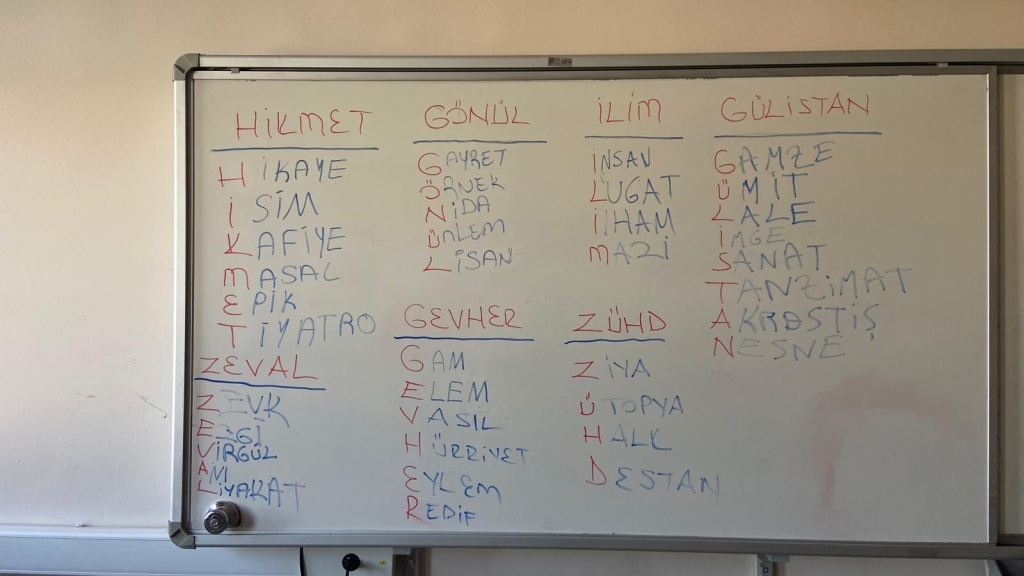 HİKMET
HİKAYE
İSİM
KAFİYE
MASAL
EPİK
TİYATRO
ZEVAL
ZEVK
EZGİ
VİRGÜL
AM
LİYAKAT
GÖNÜL
GAYRET
ÖRNEK
NİDA
ÜNLEM
LİSAN
GEVHER
GAM
ELEM
VASIL
HÜRRİYET
EYLEM
REDİF
İLİM
İNSAN
LUGAT
İLHAM
MAZİ
ZÜHD
ZİYA
ÜTOPYA
HALK
DESTAN
GÜLİSTAN
GAMZE
ÜMİT
LALE
İMGE
SANAT
TANZİMAT
AKROSTİŞ
NESNE